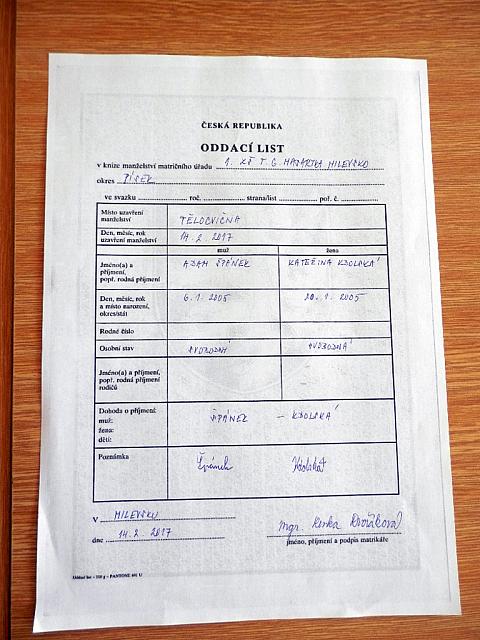 ČESKÁ REPUBLIKA
ODDACÍ LIST
v knize manželství matričního úřadu 1. ZŠ T. G. MASARYKA MILEVSKO
okres PÍSEK
ve svazku roč. strana/list poř. č.
Místo uzavření manželství TĚLOCVIČNA
Den, měsíc, rok uzavření manželství 14. 2. 2017
muž žena
Jméno(a) a příjmení, popř. rodná příjmení ADAM ŠPÁNEK KATEŘINA
Den, měsíc, rok a místo narození, okres/stát 6. 1. 2005 20. 1. 2005
Rodné číslo
Osobní stav SVOBODNÝ SVOBODNÁ
Jméno(a) a příjmení, popř. rodná příjmení rodičů
Dohoda o příjmení:
muž: ŠPÁNEK –
žena:
dětí:
Poznámka Špánek
v MILEVSKU
dne 14. 2. 2017
Mgr. Lenka Dvořáková
jméno, příjmení a podpis matrikáře